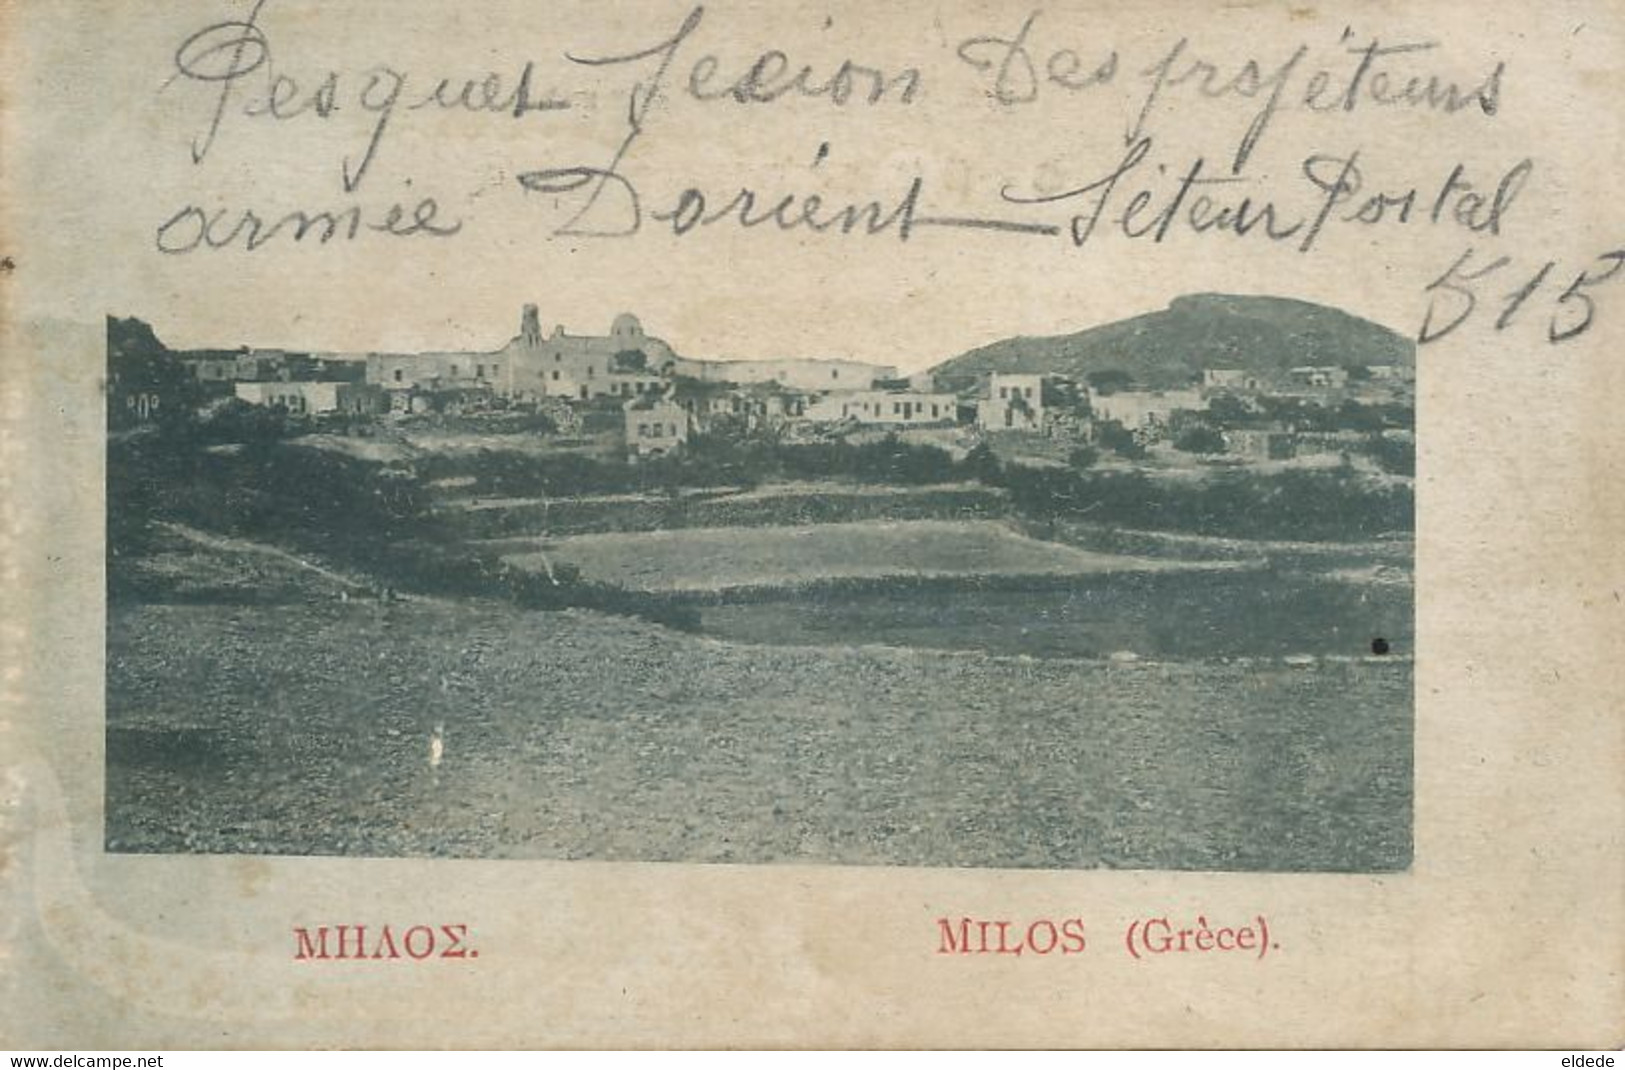 Pesquet Sexion Des projéteurs
armée Dorient Séteur Postal
515
ΜΗΛΟΣ.
MILOS (Grèce).
www.delcampe.net
eldede